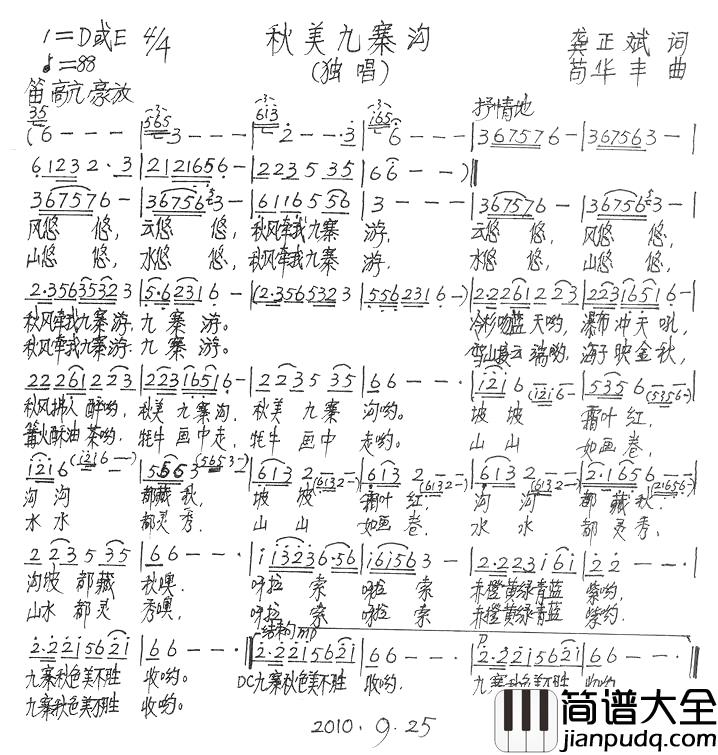 1=D或E 4/4 秋美九寨沟 龚正斌 词
♩=88 (独唱) 苟华丰 曲
笛 高亢 豪放 抒情地
(6 - - - | 3 - - - | 2 - - · 3 | 6 - - - | 3 6 7 5 7 6 - | 3 6 7 5 6 3 - |
6 1 2 3 2 · 3 | 2 1 2 1 6 5 6 - | 2 2 3 5 3 5 | 6 6 - - )
3 6 7 5 7 6 - | 3 6 7 5 6 3 - | 6 1 1 6 5 5 6 | 3 - - - | 3 6 7 5 7 6 - | 3 6 7 5 6 3 - |
风悠 悠, 云悠 悠, 秋风牵我九寨 游. 云悠 悠, 风悠 悠,
山悠 悠, 水悠 悠, 秋风牵我九寨 游. 水悠 悠, 山悠 悠,
2 · 3 5 6 3 5 3 2 3 | 5 · 6 2 3 1 6 - | (2 · 3 5 6 5 3 2 3 | 5 5 6 2 3 1 6 -) | 2 · 2 2 6 1 2 2 3 | 2 2 3 1 6 5 1 6 -
秋风牵我九寨游. 九 寨 游。 冷杉吻蓝 天哟, 瀑布 冲 天 吼,
秋风牵我九寨游. 九 寨 游。 云 端哟, 海子 映 金 秋,
2 2 2 6 1 2 2 3 | 2 2 3 1 6 5 1 6 - | 2 2 3 5 3 5 | 6 6 - - · | i 2 i 6 | 5 3 5 6
秋风拂人 醉哟, 秋美 九 寨 沟, 秋美 九 寨 沟哟。 坡 坡 霜叶 红,
篝火酥油 茶哟, 牦牛 画 中 走, 牦牛 画 中 走哟。 山 山 如画 卷,
沟 沟 都藏 秋, 坡 坡 霜叶 红, 沟 沟 都 藏 秋.
水 水 都灵 秀, 山 山 如画 卷, 水 水 都 灵 秀,
2 2 3 5 3 5 | 6 6 - - · | i i 3 2 3 6 · 5 6 | i 6 i 5 6 3 - | 2 · 2 2 3 i 6 i | 2 2 - - - |
沟坡 都 藏 秋噢. 呀拉 索 啦 索 赤橙黄绿青蓝 紫哟.
山水 都 灵 秀噢, 呀拉 索 啦 索 赤橙黄绿青蓝 紫哟.
结构
2 · 2 2 i 5 6 2 i | 6 6 - - · 2 · 2 2 i 5 6 2 i | 6 6 - - · | 2 · 2 2 i 5 6 2 i | 6 6 - - ·
九寨秋色美不胜 收哟。 DC九寨秋色美不胜 收哟. 九寨秋色美不胜 收哟.
九寨秋色美不胜 收哟。
2010.9.25
简谱大全
jianpudq.com